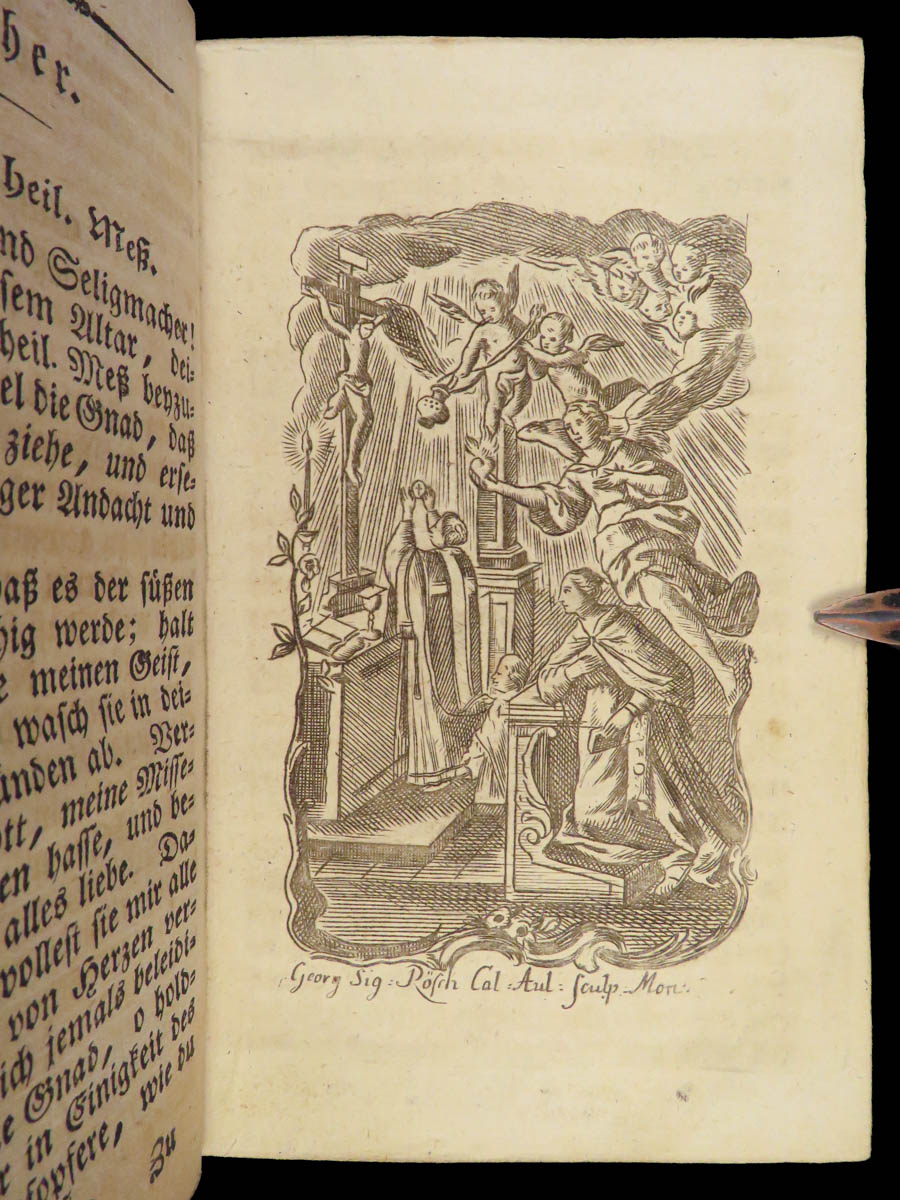 her.
heil. Meß.
nd Seligmacher!
sem Altar, dei-
heil. Meß beyzu-
el die Gnad, daß
ziehe, und erse-
ger Andacht und
daß es der süßen
hig werde; halt
e meinen Geist,
wasch sie in dei-
ünden ab. Ver-
ott, meine Misse-
en hasse, und be-
alles liebe. Da-
wollest sie mir alle
von Herzen ver-
ich jemals beleidi-
e Gnad, o hold-
r in Einigkeit des
opfere, wie du
Zu
Georg Sig: Rösch Cal: Aul: sculp Mon: